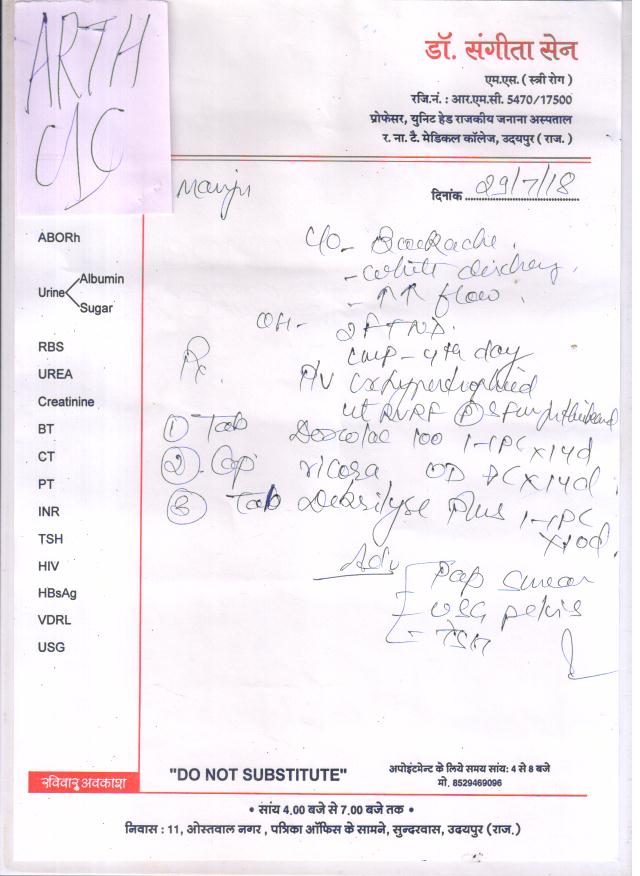 ARTH
डॉ. संगीता सेन
एम.एस. ( स्त्री रोग )
रजि.नं. : आर.एम.सी. 5470/17500
प्रोफेसर, युनिट हेड राजकीय जनाना अस्पताल
र. ना. टै. मेडिकल कॉलेज, उदयपुर ( राज. )
Manju
दिनांक 29/7/18
ABORh
Urine Albumin
Sugar
RBS
UREA
Creatinine
BT
CT
PT
INR
TSH
HIV
HBsAg
VDRL
USG
C/O - Backache
- white
- ↑↑ flow
OH - 2FTND
LMP - 4th day
Rx
P/V CX hypertrophied
ut RVRF
① Tab 100 1-1 PC x 14d
②. Cap OD PC x 14d
③ Tab Plus 1-1 PC
x 10d
Adv
Pap smear
- USG pelvis
- TSH
रविवार अवकाश
"DO NOT SUBSTITUTE"
अपोइंटमेन्ट के लिये समय सांय: 4 से 8 बजे
मो. 8529469096
• सांय 4.00 बजे से 7.00 बजे तक •
निवास : 11, ओस्तवाल नगर , पत्रिका ऑफिस के सामने, सुन्दरवास, उदयपुर (राज.)